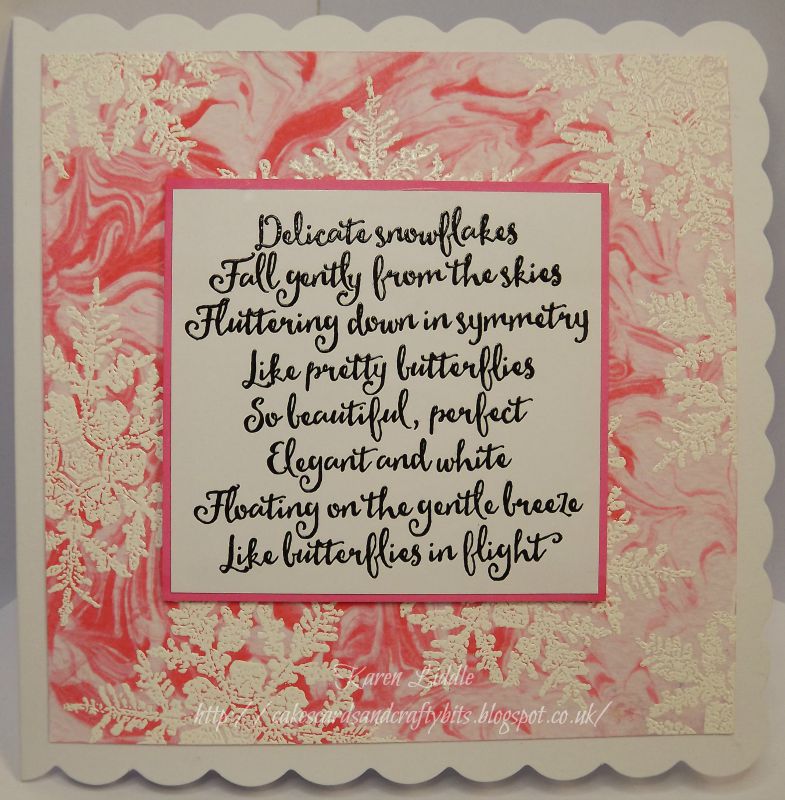 Delicate snowflakes
Fall gently from the skies
Fluttering down in symmetry
Like pretty butterflies
So beautiful, perfect
Elegant and white
Floating on the gentle breeze
Like butterflies in flight
Karen Liddle
http://cakescardsandcraftybits.blogspot.co.uk/